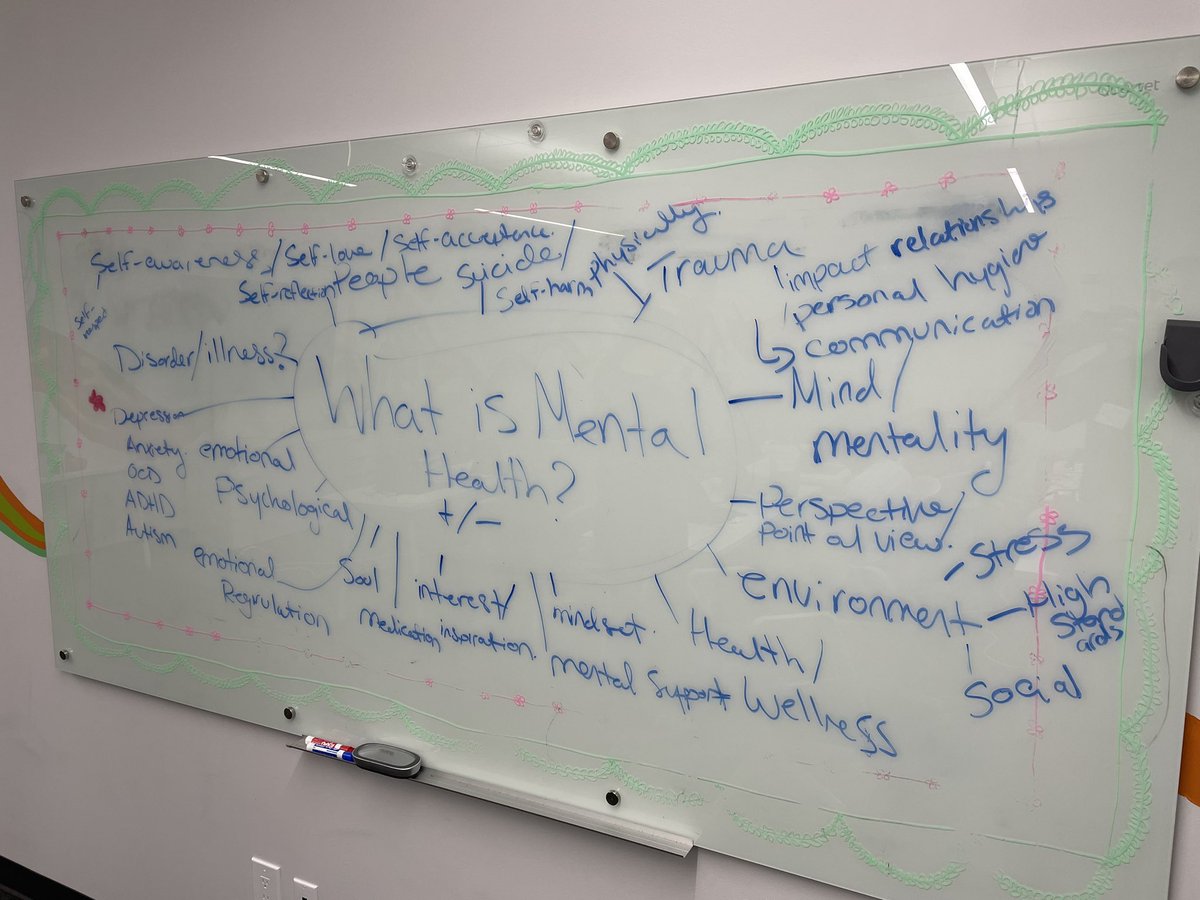 Self-awareness / Self-love / Self-acceptance.
Self-reflection People Suicide /
Self-harm physically.
Trauma
impact relationships
personal hygiene
communication
Self-
Disorder/illness?
Depression
Anxiety
OCD
ADHD
Autism
emotional
Psychological
emotional
Regrulation
What is Mental
Health?
+/-
Mind /
mentality
Perspective/
Point of view.
environment
Stress
High
Stand
ards
Social
Soul /
medication
interest/
inspiration.
mindset.
mental Support
Health /
Wellness